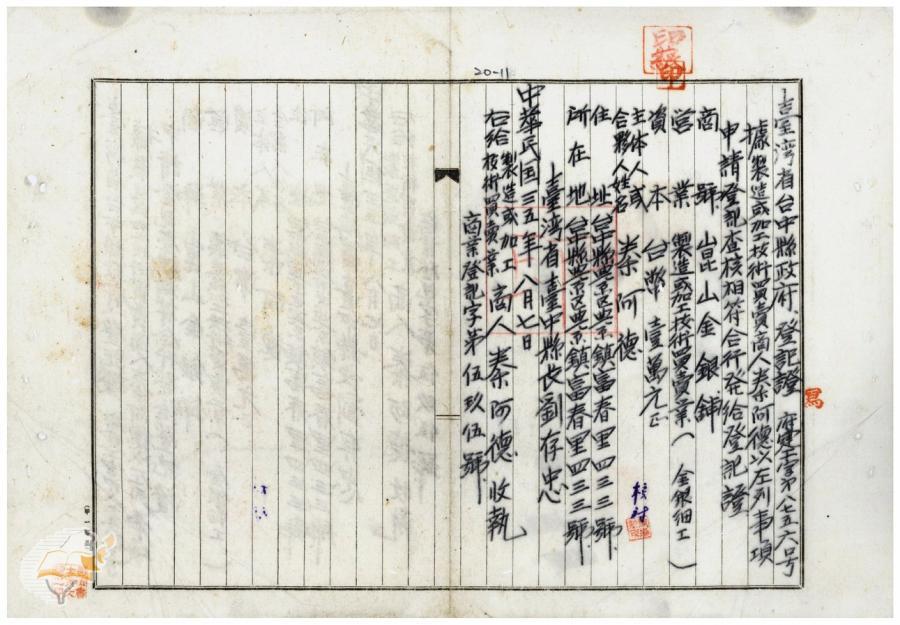 20-11
臺灣省台中縣政府登記證 府建工字第八七五六号
據製造或加工技術買賣商人秦阿德以左列事項
申請登記查核相符合行発給登記證
商號 崑山金銀鋪
营業 製造或加工技術買賣業(金銀細工)
資本 台幣壹萬元正
主体人或合夥人姓名 秦阿德
住址 台中縣豐原區豐原鎮富春里四三三號
所在地 台中縣豐原區豐原鎮富春里四三三號
臺灣省臺中縣長劉存忠
中華民国三五年八月七日
右给製造或加工技術買賣業商人秦阿德收執
商業登記字第伍玖伍號
校对